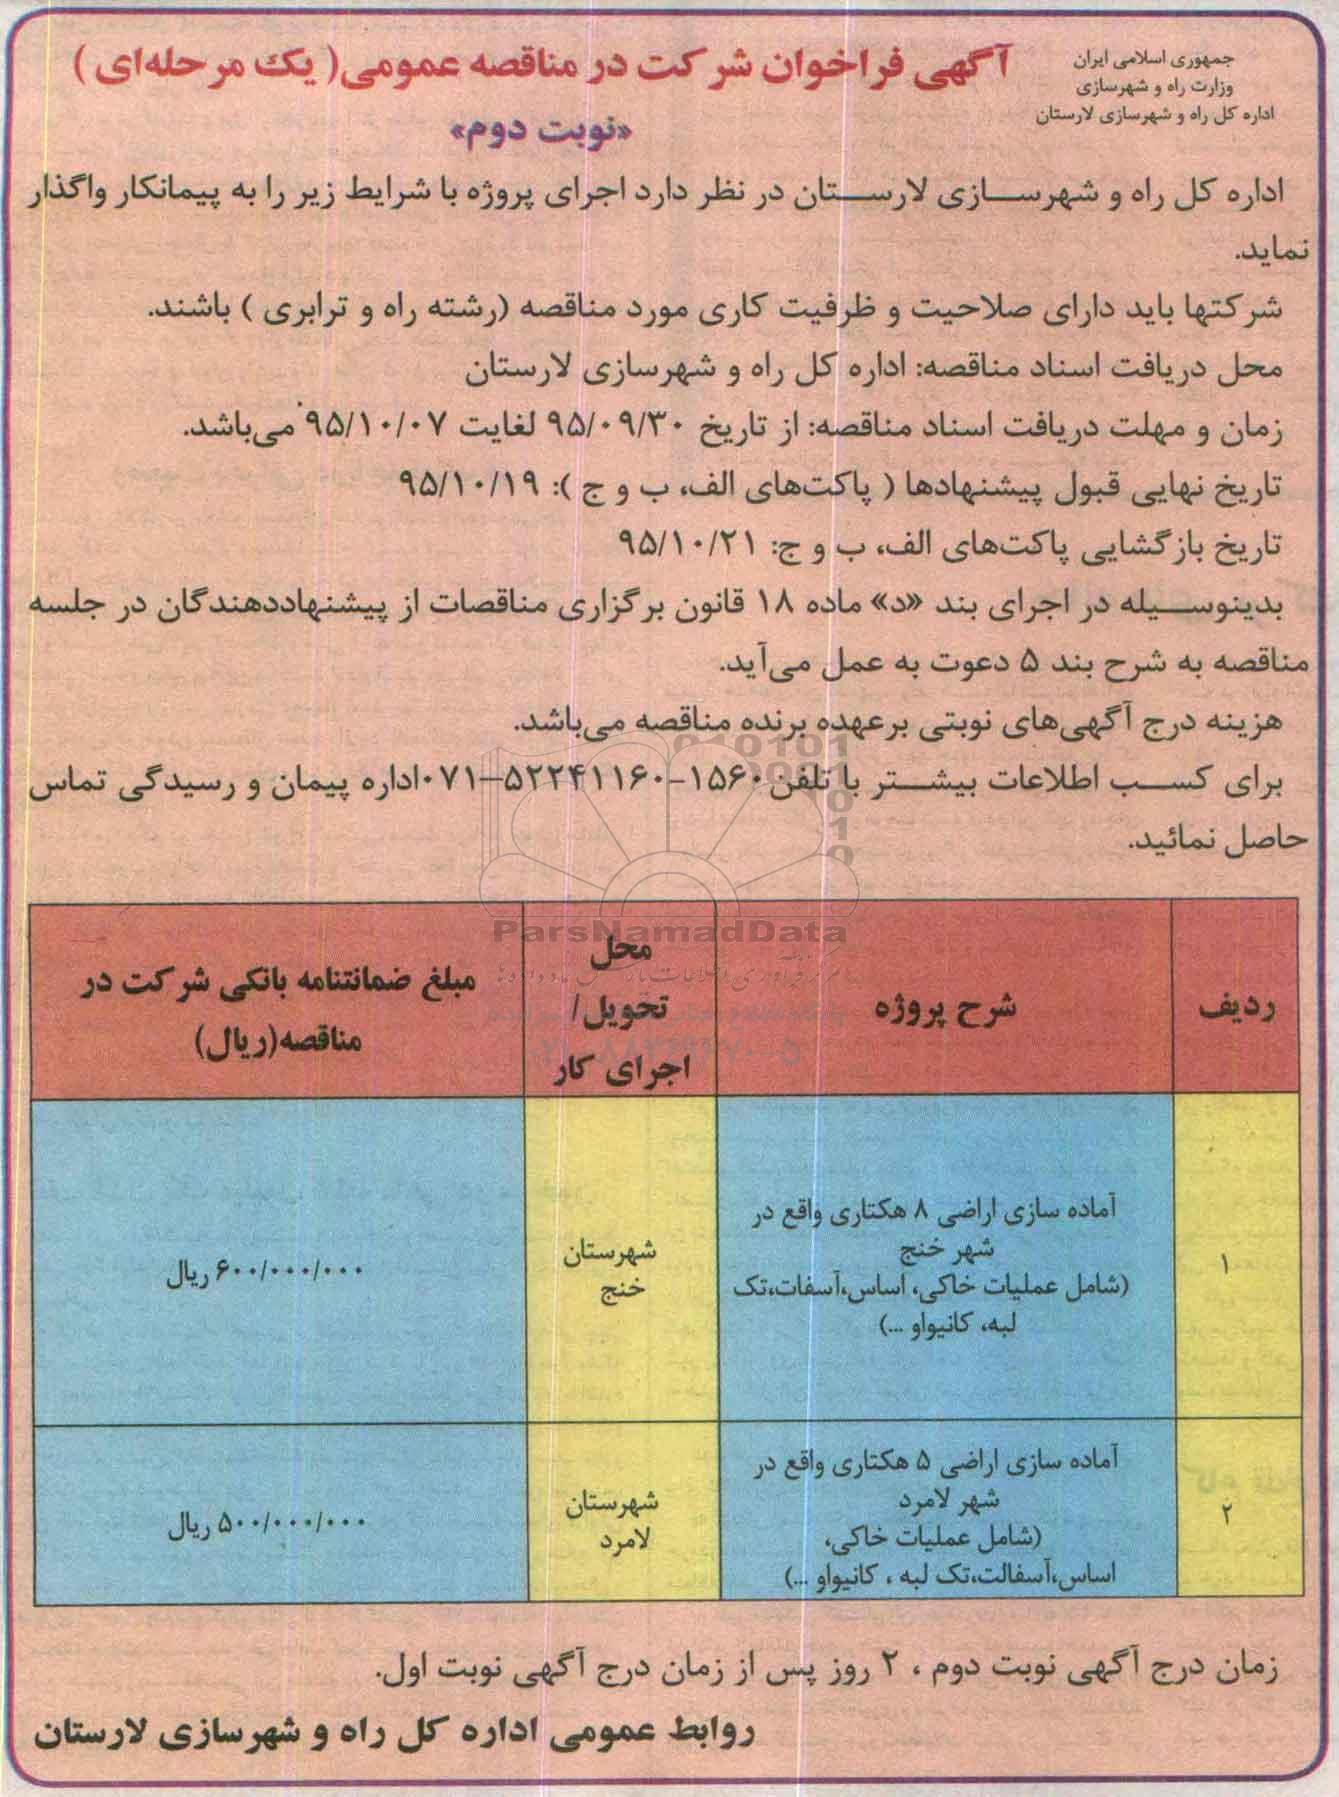 جمهوری اسلامی ایران
وزارت راه و شهرسازی
اداره کل راه و شهرسازی لارستان
آگهی فراخوان شرکت در مناقصه عمومی( یک مرحله‌ای )
«نوبت دوم»
اداره کل راه و شهرسازی لارستان در نظر دارد اجرای پروژه با شرایط زیر را به پیمانکار واگذار
نماید.
شرکتها باید دارای صلاحیت و ظرفیت کاری مورد مناقصه (رشته راه و ترابری ) باشند.
محل دریافت اسناد مناقصه: اداره کل راه و شهرسازی لارستان
زمان و مهلت دریافت اسناد مناقصه: از تاریخ ۹۵/۰۹/۳۰ لغایت ۹۵/۱۰/۰۷ می‌باشد.
تاریخ نهایی قبول پیشنهادها ( پاکت‌های الف، ب و ج ): ۹۵/۱۰/۱۹
تاریخ بازگشایی پاکت‌های الف، ب و ج: ۹۵/۱۰/۲۱
بدینوسیله در اجرای بند «د» ماده ۱۸ قانون برگزاری مناقصات از پیشنهاددهندگان در جلسه
مناقصه به شرح بند ۵ دعوت به عمل می‌آید.
هزینه درج آگهی‌های نوبتی برعهده برنده مناقصه می‌باشد.
برای کسب اطلاعات بیشتر با تلفن ۱۵۶۰-۵۲۲۴۱۱۶۰-۰۷۱ اداره پیمان و رسیدگی تماس
حاصل نمائید.
ParsNamadData
ردیف
شرح پروژه
محل
تحویل/
اجرای کار
مبلغ ضمانتنامه بانکی شرکت در
مناقصه(ریال)
۱
آماده سازی اراضی ۸ هکتاری واقع در
شهر خنج
(شامل عملیات خاکی، اساس،آسفات،تک
لبه، کانیواو ...)
شهرستان
خنج
۶۰۰/۰۰۰/۰۰۰ ریال
۲
آماده سازی اراضی ۵ هکتاری واقع در
شهر لامرد
(شامل عملیات خاکی،
اساس،آسفالت،تک لبه ، کانیواو ...)
شهرستان
لامرد
۵۰۰/۰۰۰/۰۰۰ ریال
زمان درج آگهی نوبت دوم ، ۲ روز پس از زمان درج آگهی نوبت اول.
روابط عمومی اداره کل راه و شهرسازی لارستان